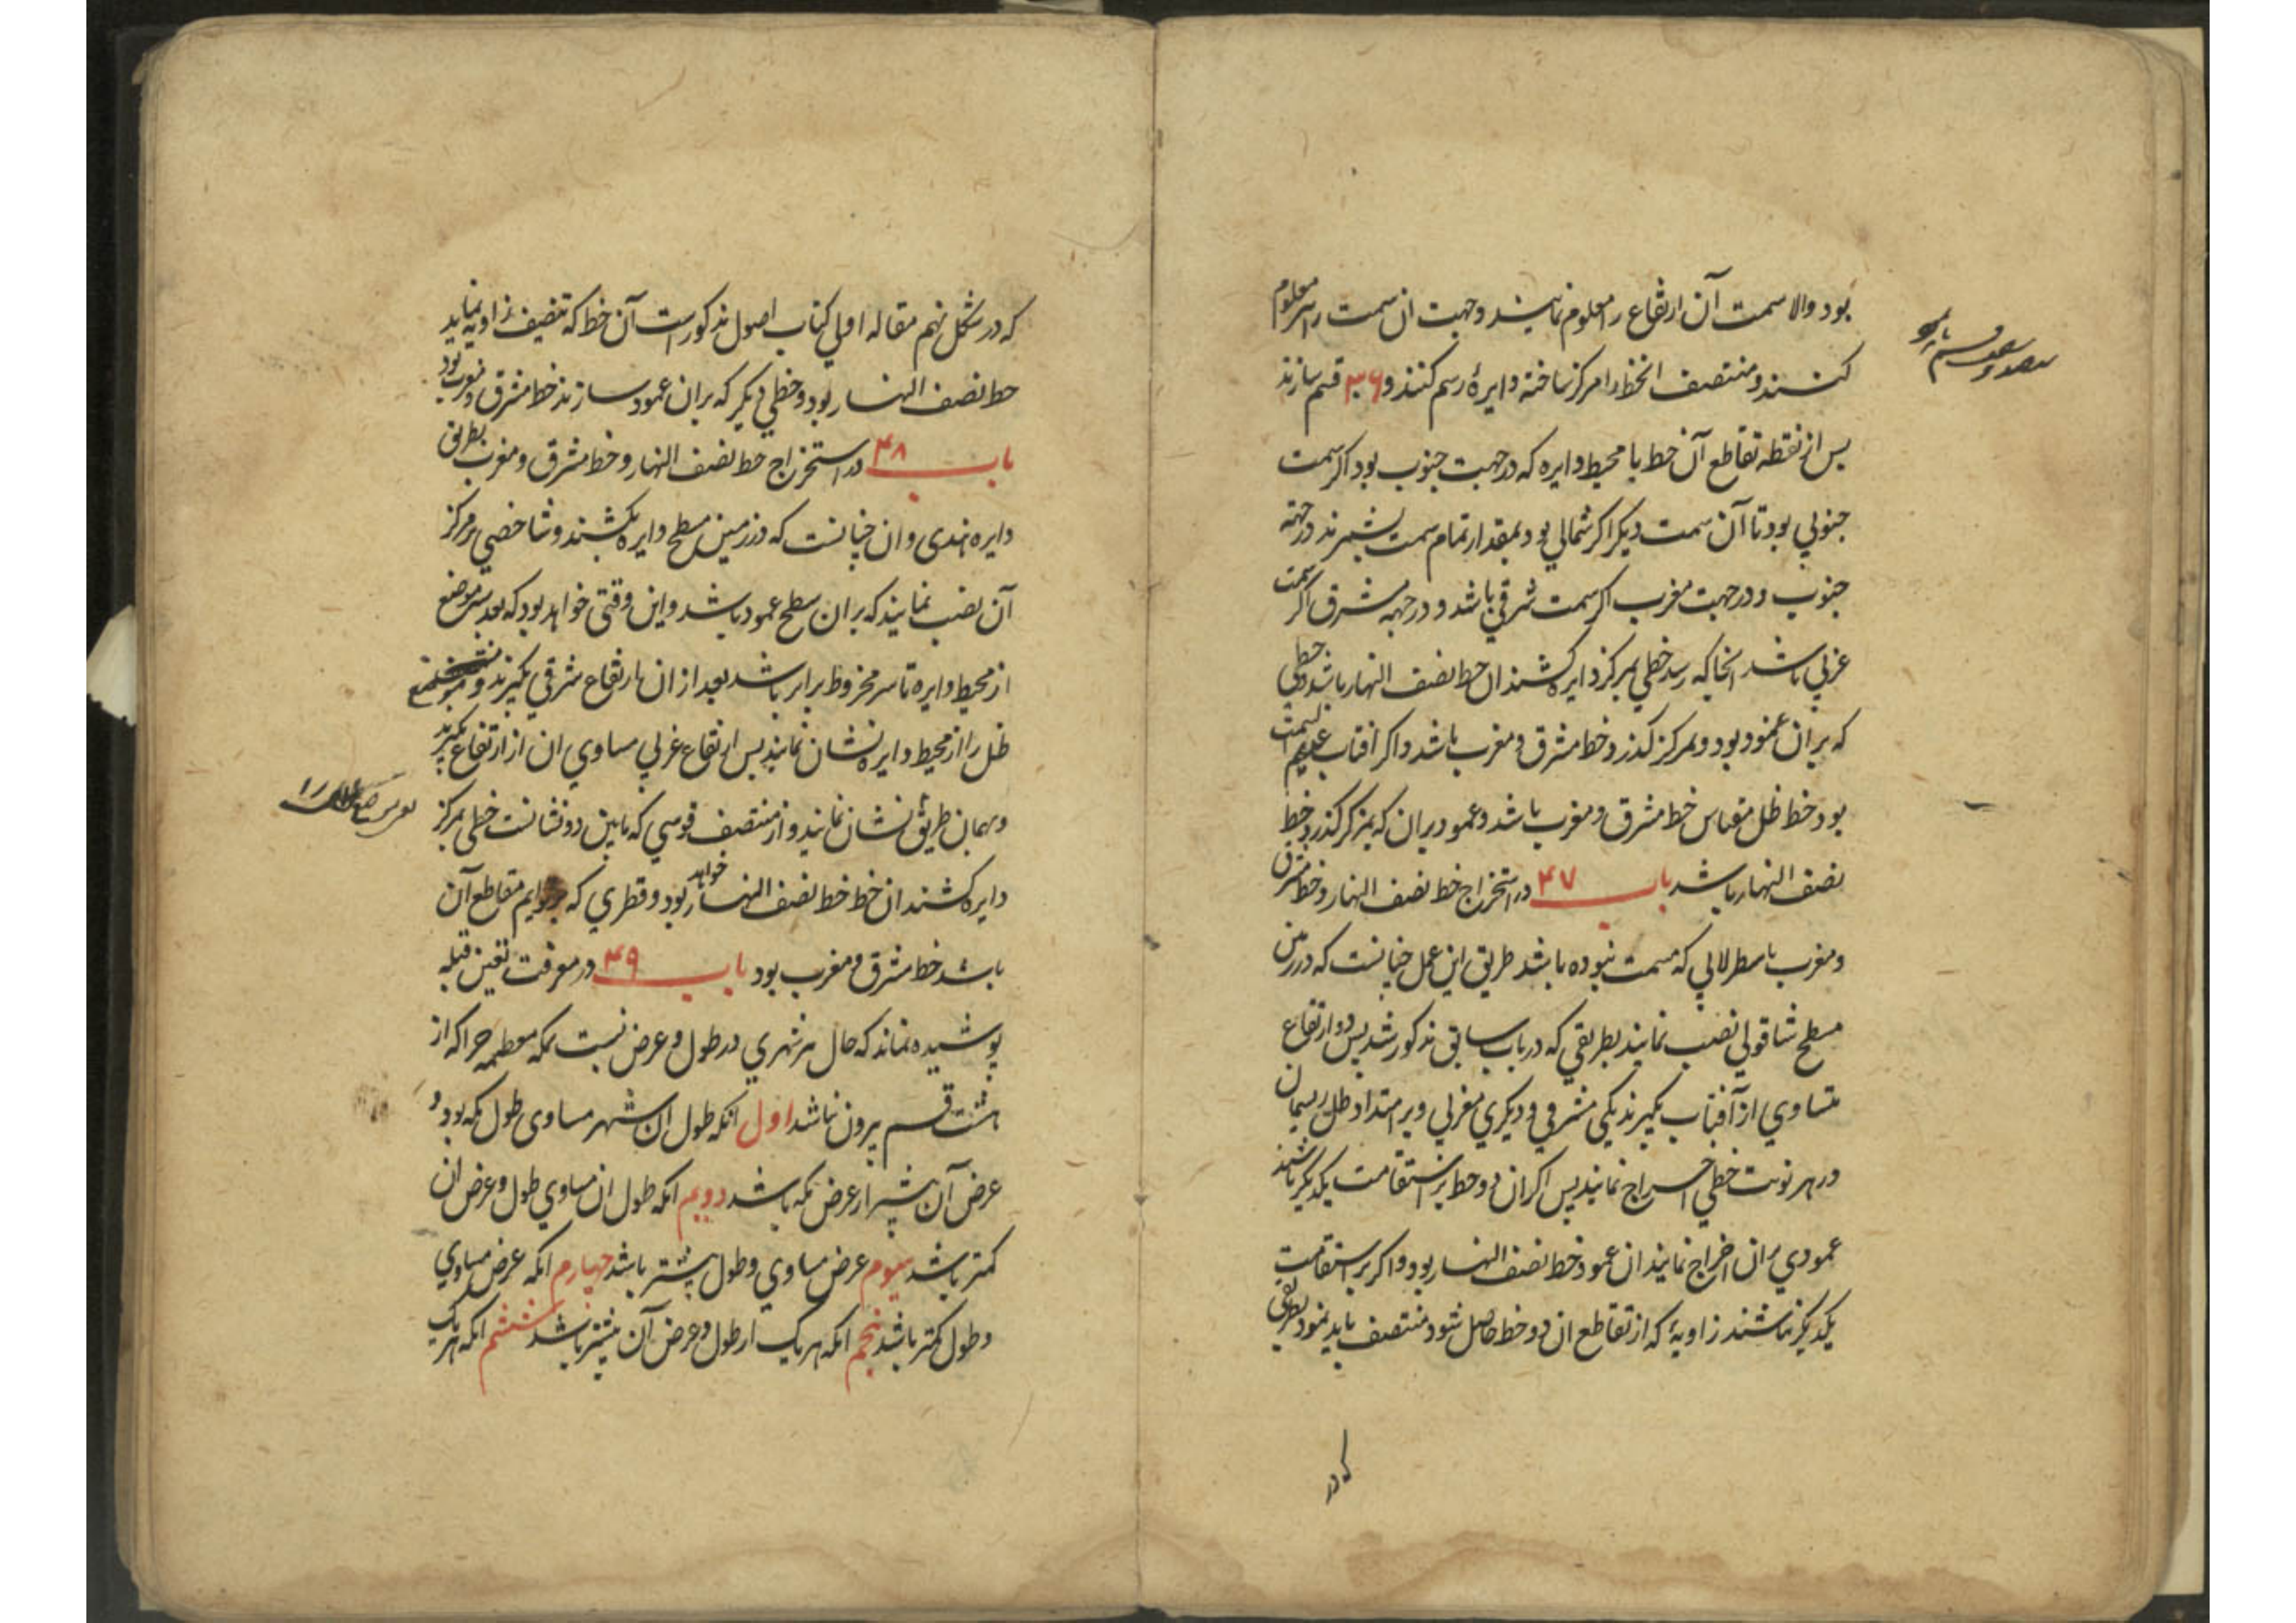 بود والا سمت آن ارتفاع را معلوم نمایند وجهت ان سمت را نیز معلوم
کنند و منتصف انخط را مرکز ساخته دایرۀ رسم کنند و ۳۶۰ قسم سازند
پس از نقطه تقاطع آن خط با محیط دایره که در جهت جنوب بود اگر سمت
جنوبي بود تا آن سمت دیگر اگر شمالي بود بمقدار تمام سمت بشمرند در جهته
جنوب و در جهت مغرب اگر سمت شرقي باشد و در جهه مشرق اگر سمت
غربي باشد انجا که رسد خطي بمرکز دایره کشند ان خط نصف النهار باشد و خطي
که بر ان عمود بود و بمرکز کذرد خط مشرق و مغرب باشد و اکر افتاب عدیم السمت
بود خط ظل مقیاس خط مشرق و مغرب باشد و عمود بران که بمرکز کذرد خط
نصف النهار باشد باب ۴۷ در استخراج خط نصف النهار و خط مشرق
و مغرب باسطرلابي که مسمت نبوده باشد طریق این عمل چنانست که در زمین
مسطح شاقولي نصب نمایند بطریقي که در باب سابق مذکور شد پس دو ارتفاع
متساوي از آفتاب بکیرند یکي مشرقي و دیکري مغربي و بر امتداد ظل ریسمان
در هر نوبت خطي اخراج نمایند پس اکر ان دو خط بر استقامت یکدیکر باشند
عمودي بران اخراج نمایند ان عمود خط نصف النهار بود و اکر بر استقامت
یکدیکر نباشند زاویۀ که از تقاطع ان دو خط حاصل شود منتصف باید نمود بطریقي
که در
که در شکل نهم مقاله اولي کتاب اصول مذکور است آن خط که تنصیف زاویه نماید
خط نصف النهار بود و خطي دیکر که بران عمود سازند خط مشرق و مغرب بود
باب ۴۸ در استخراج خط نصف النهار و خط مشرق و مغرب بطریق
دایره هندی و ان چنانست که در زمین مسطح دایره بکشند و شاخصي بر مرکز
آن نصب نمایند که بر ان سطح عمود باشد و این وقتی خواهد بود که بعد سه موضع
از محیط دایره تا سر مخروط برابر باشد بعد از ان ارتفاع شرقي بکیرند و موضع
ظل را از محیط دایره نشان نمایند پس ارتفاع غربي مساوي ان از ارتفاع بکیرند
و بهمان طریق نشان نمایند و از منتصف قوسي که مابین دو نشانست خطي بمرکز
دایره کشند ان خط خط نصف النهار خواهد بود و قطري که بر قوایم مقاطع آن
باشد خط مشرق و مغرب بود باب ۴۹ در معرفت تعین قبله
پوشیده نماند که حال هر شهري در طول و عرض نسبت بمکه معظمه چرا که از
هشت قسم بیرون نباشد اول انکه طول ان شهر مساوی طول مکه بود و
عرض آن بیشتر از عرض مکه باشد دویم انکه طول ان مساوي طول و عرض ان
کمتر باشد سیوم عرض مساوي و طول بیشتر باشد چهارم انکه عرض مساوي
و طول کمتر باشد پنجم انکه هر یک از طول و عرض آن بیشتر باشد ششم انکه هر یک